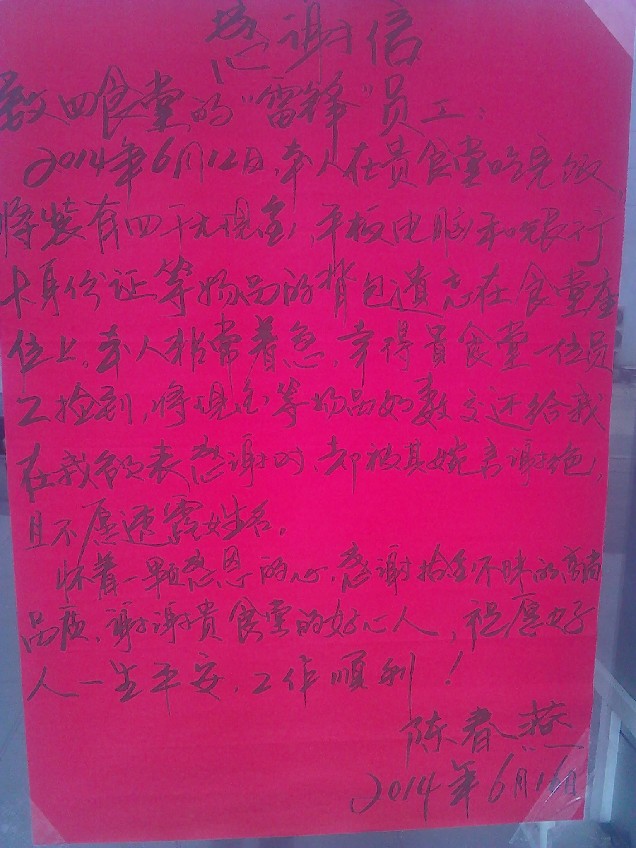 感谢信
教四食堂的“雷锋”员工：
2014年6月12日，本人在贵食堂吃完饭，
将装有四千元现金，平板电脑和银行
卡身份证等物品的背包遗忘在食堂座
位上。本人非常着急，幸得贵食堂一位员
工捡到，将现金等物品如数交还给我
在我欲表感谢时，却被其婉言谢绝，
且不愿透露姓名。
怀着一颗感恩的心，感谢拾金不昧的高尚
品质，谢谢贵食堂的好心人，祝愿好
人一生平安，工作顺利！
陈春燕
2014年6月 日